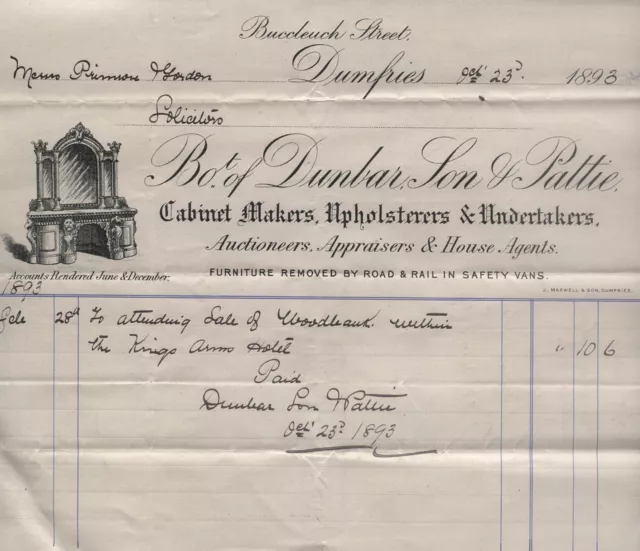 Buccleuch Street.
Messrs Primrose & Gordon Dumfries Octr 23d. 1893
Solicitors
Bot. of Dunbar, Son & Pattie.
Cabinet Makers, Upholsterers & Undertakers,
Auctioneers, Appraisers & House Agents.
Accounts Rendered June & December.
FURNITURE REMOVED BY ROAD & RAIL IN SAFETY VANS.
J. MAXWELL & SON, DUMFRIES.
1893
28th To attending Sale of Woodbank within
the Kings Arms Hotel " 10 6
Paid
Dunbar Son & Pattie
Octr 23d 1893